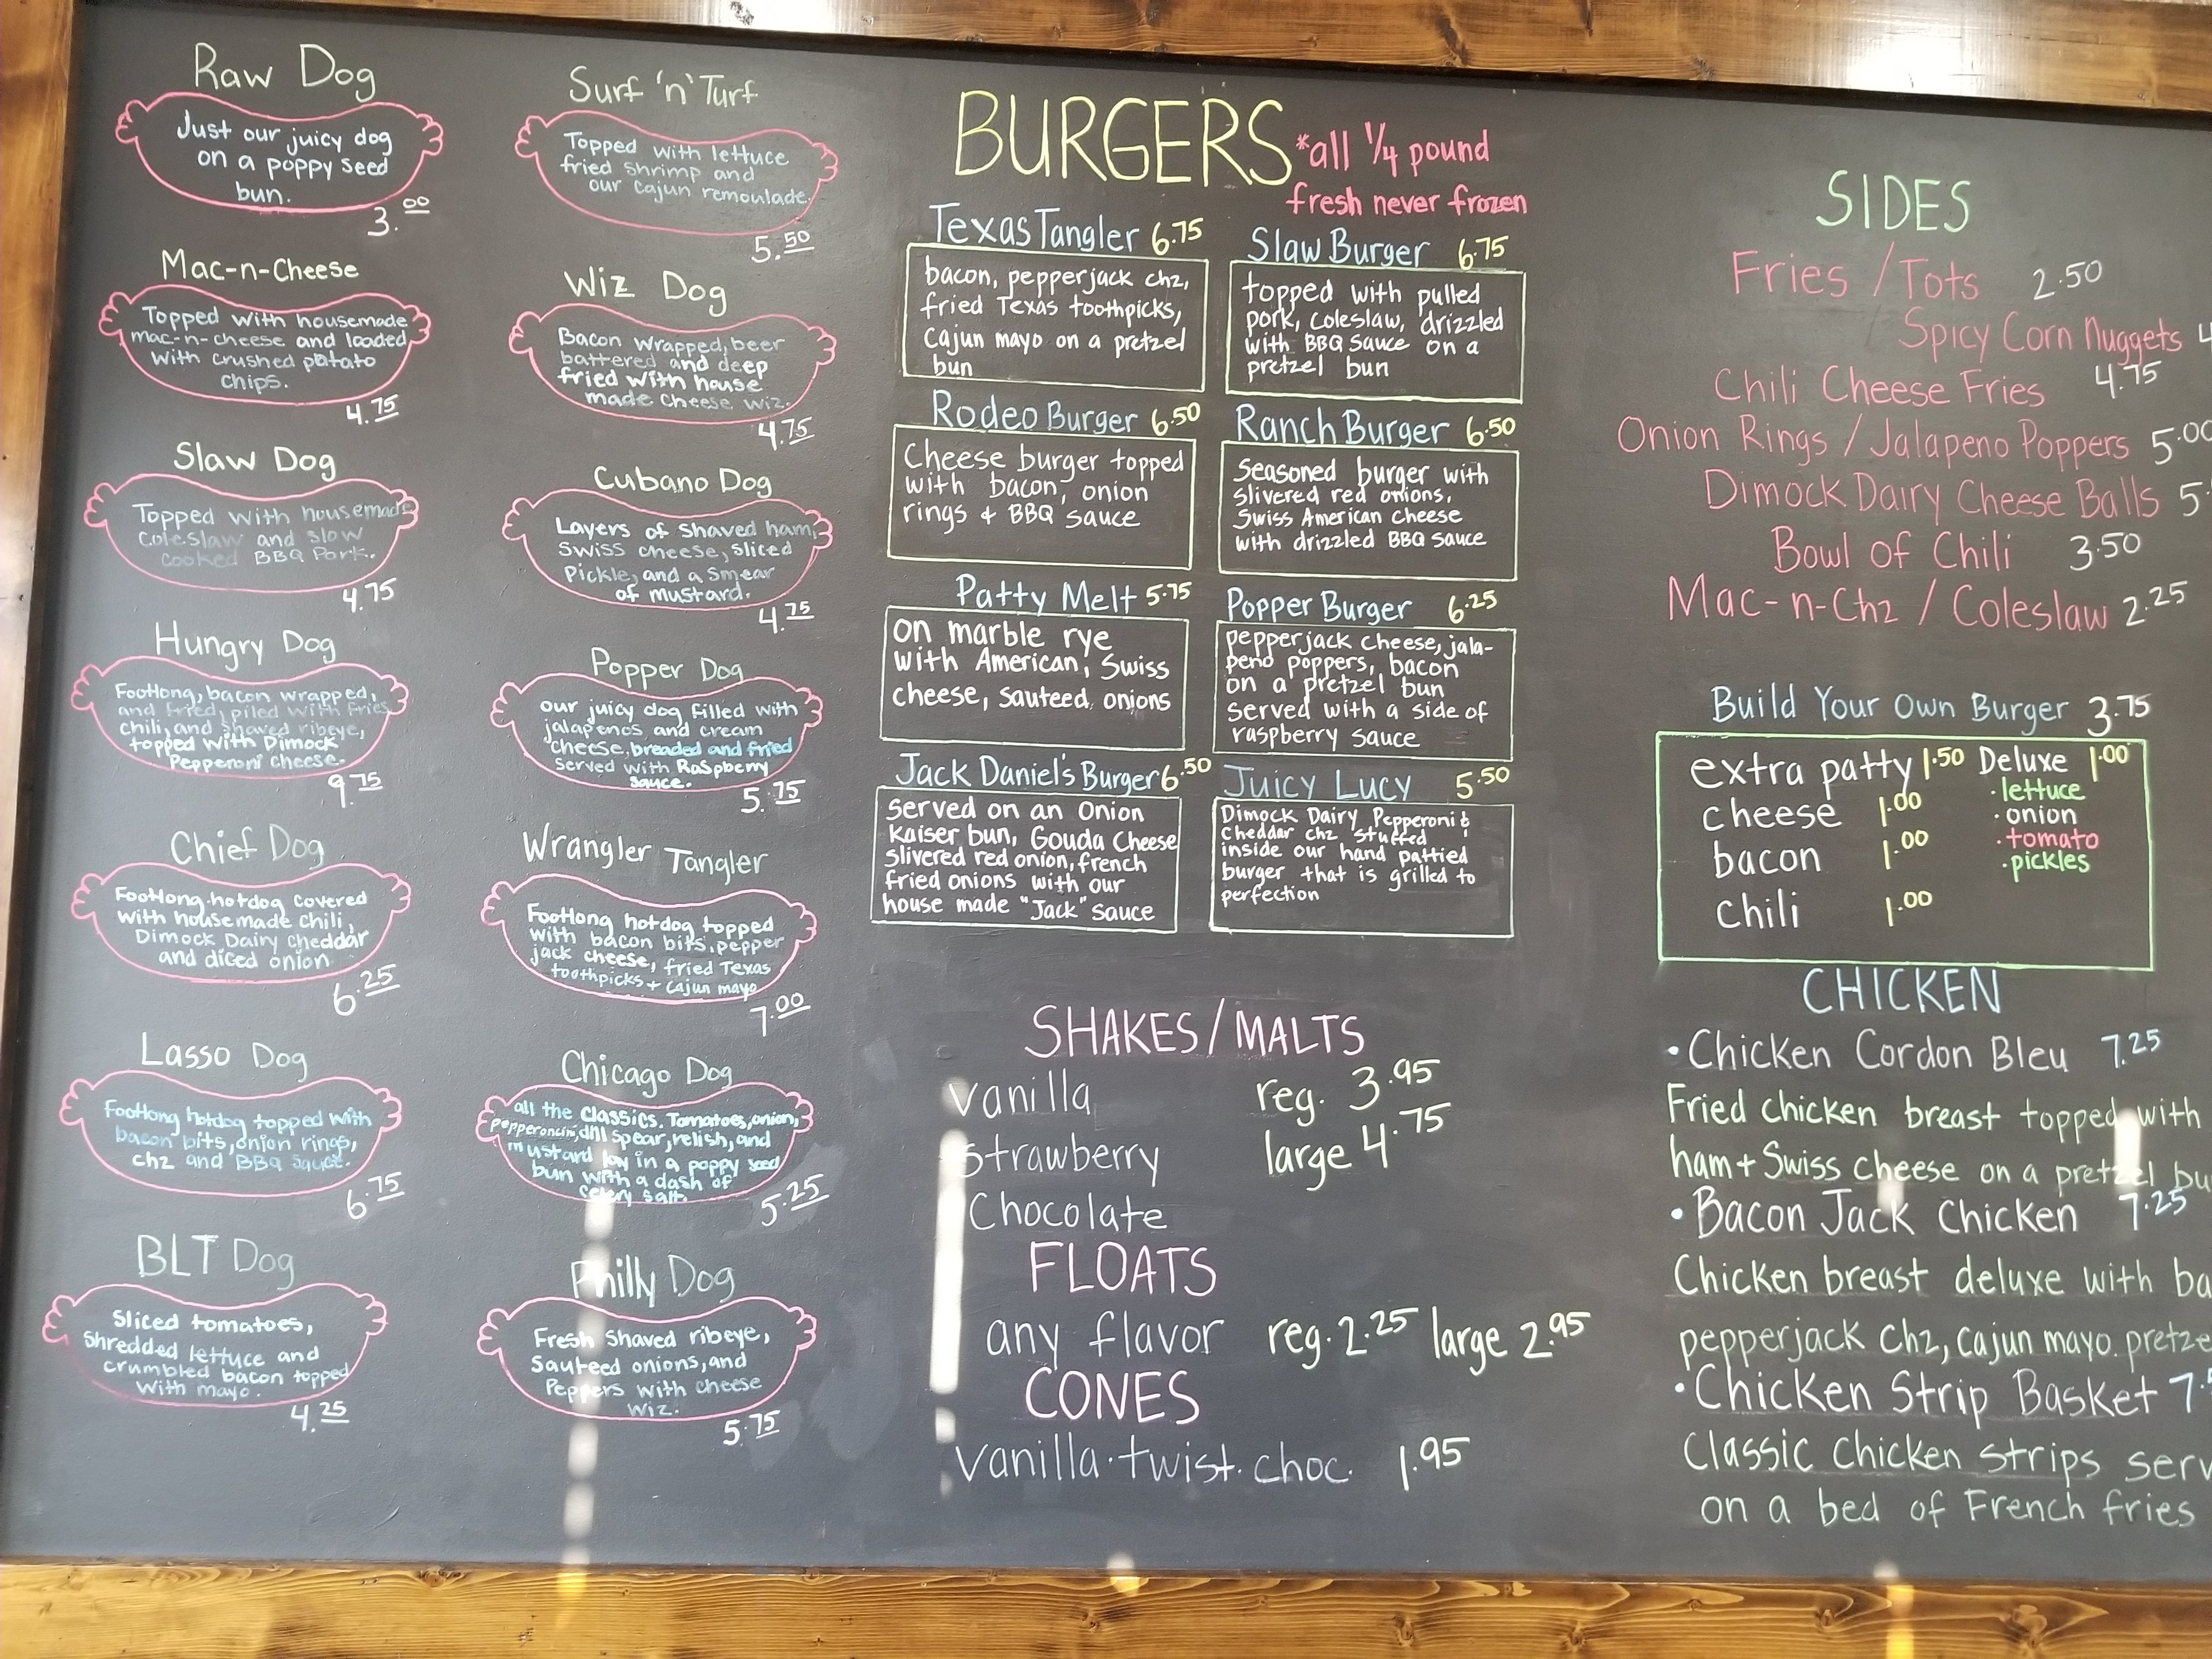 Raw Dog
Just our juicy dog
on a poppy seed
bun.
3.00
Mac-n-Cheese
Topped with housemade
mac-n-cheese and loaded
with crushed potato
chips.
4.75
Slaw Dog
Topped with housemade
Coleslaw and slow
cooked BBQ Pork.
4.75
Hungry Dog
Footlong, bacon wrapped,
and fried, piled with fries
chili, and shaved ribeye,
topped with Dimock
Pepperoni cheese.
9.75
Chief Dog
Footlong hotdog covered
with housemade chili,
Dimock Dairy cheddar
and diced onion
6.25
Lasso Dog
Footlong hotdog topped with
bacon bits, onion rings,
chz and BBQ sauce.
6.75
BLT Dog
Sliced tomatoes,
shredded lettuce and
crumbled bacon topped
with mayo.
4.25
Surf 'n' Turf
Topped with lettuce
fried shrimp and
our Cajun remoulade.
5.50
Wiz Dog
Bacon wrapped, beer
battered and deep
fried with house
made cheese wiz.
4.75
Cubano Dog
Layers of shaved ham,
swiss cheese, sliced
Pickle, and a smear
of mustard.
4.75
Popper Dog
our juicy dog filled with
jalapenos and cream
cheese, breaded and fried
served with Raspberry
sauce.
5.75
Wrangler Tangler
Footlong hotdog topped
with bacon bits, pepper
jack cheese, fried Texas
toothpicks + Cajun mayo
7.00
Chicago Dog
all the classics. Tomatoes, onion,
pepperoncini, dill spear, relish, and
mustard lay in a poppy seed
bun with a dash of
celery salt.
5.25
Philly Dog
Fresh shaved ribeye,
Sauteed onions, and
Peppers with cheese
wiz.
5.75
BURGERS *all 1/4 pound
fresh never frozen
Texas Tangler 6.75
bacon, pepperjack chz,
fried Texas toothpicks,
Cajun mayo on a pretzel
bun
Slaw Burger 6.75
topped with pulled
pork, coleslaw, drizzled
with BBQ sauce on a
pretzel bun
Rodeo Burger 6.50
Cheese burger topped
with bacon, onion
rings + BBQ sauce
Ranch Burger 6.50
Seasoned burger with
slivered red onions,
Swiss American cheese
with drizzled BBQ sauce
Patty Melt 5.75
on marble rye
with American, Swiss
cheese, sauteed onions
Popper Burger 6.25
pepperjack cheese, jala-
peno poppers, bacon
on a pretzel bun
served with a side of
raspberry sauce
Jack Daniel's Burger 6.50
served on an onion
kaiser bun, Gouda Cheese
slivered red onion, french
fried onions with our
house made "Jack" sauce
Juicy Lucy 5.50
Dimock Dairy Pepperoni &
Cheddar chz stuffed
inside our hand pattied
burger that is grilled to
perfection
SHAKES/MALTS
vanilla reg. 3.95
strawberry large 4.75
Chocolate
FLOATS
any flavor reg. 2.25 large 2.95
CONES
vanilla·twist·choc. 1.95
SIDES
Fries / Tots 2.50
Spicy Corn Nuggets
Chili Cheese Fries 4.75
Onion Rings / Jalapeno Poppers 5.00
Dimock Dairy Cheese Balls
Bowl of Chili 3.50
Mac-n-Chz / Coleslaw 2.25
Build Your Own Burger 3.75
extra patty 1.50 Deluxe 1.00
cheese 1.00 ·lettuce
bacon 1.00 ·onion
chili 1.00 ·tomato
·pickles
CHICKEN
·Chicken Cordon Bleu 7.25
Fried chicken breast topped with
ham + Swiss cheese on a pretzel
·Bacon Jack Chicken 7.25
Chicken breast deluxe with
pepperjack chz, cajun mayo.
·Chicken Strip Basket
Classic chicken strips
on a bed of French fries